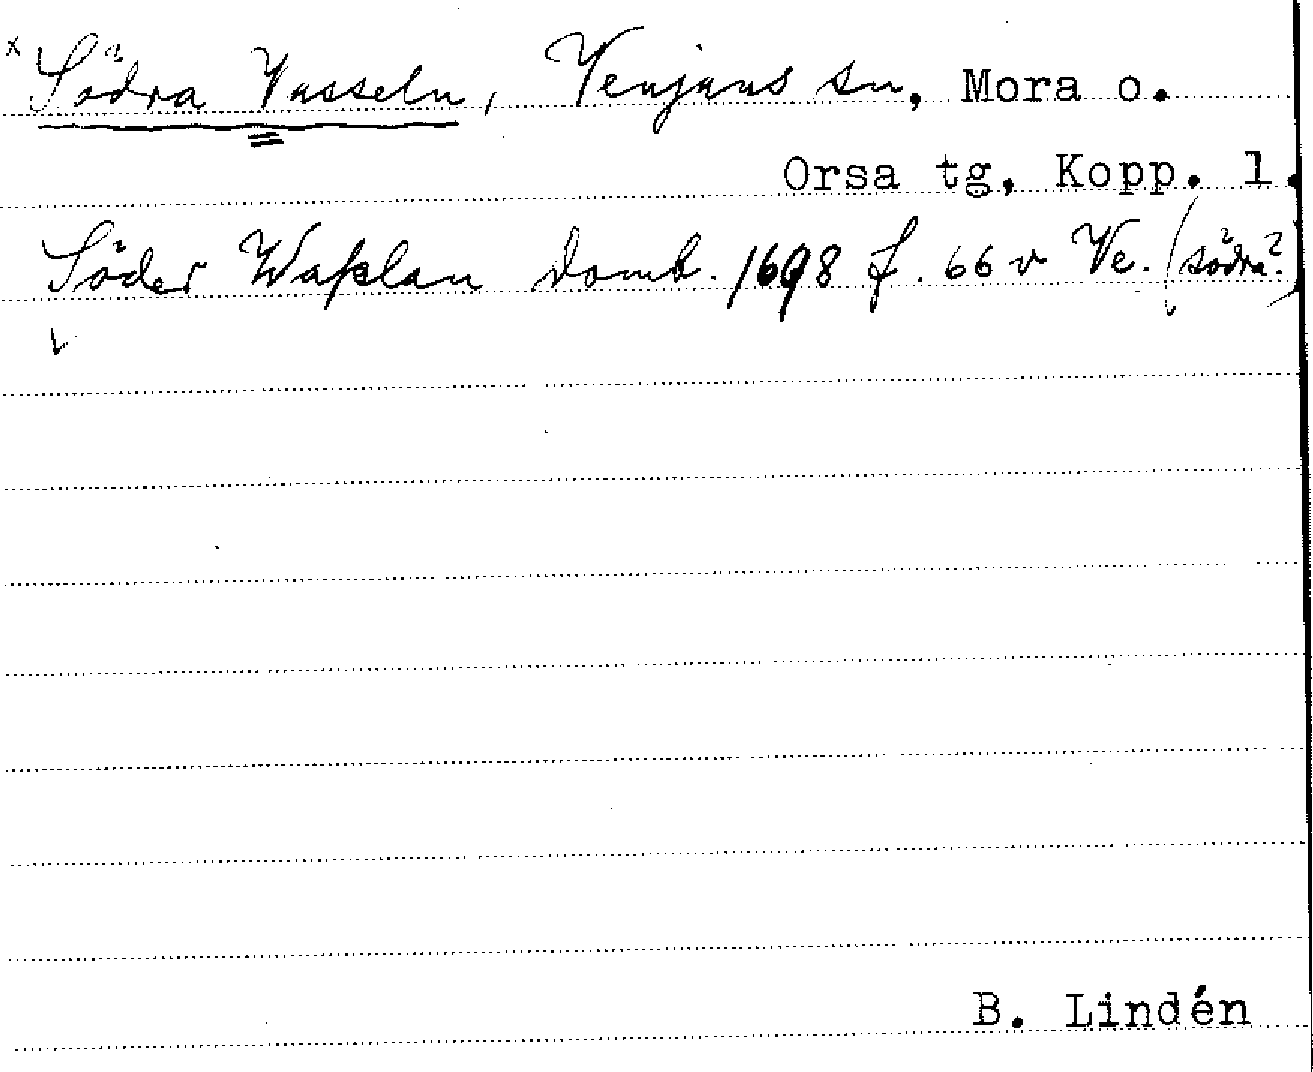 x Södra Vasseln, Venjans sn, Mora o.
Orsa tg, Kopp. l.
Söder Waßlan Domb. 1698 f. 66 v Ve. (södra?)
B. Lindén